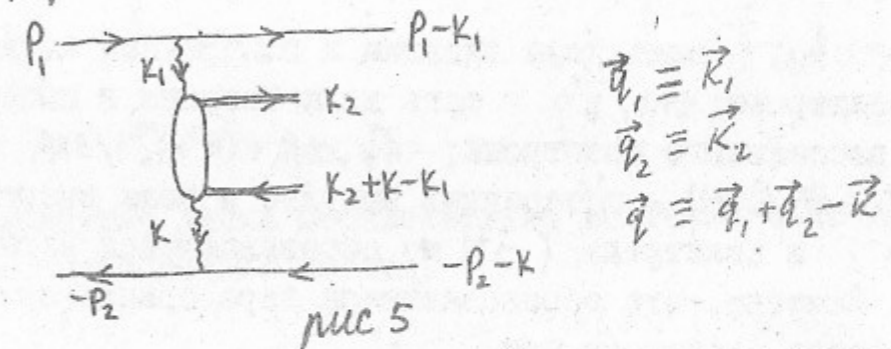 P₁ P₁-K₁
K₁
K₂
K₂+K-K₁
K
-P₂ -P₂-K
рис 5
q⃗₁ ≡ K⃗₁
q⃗₂ ≡ K⃗₂
q⃗ ≡ q⃗₁+q⃗₂-K⃗